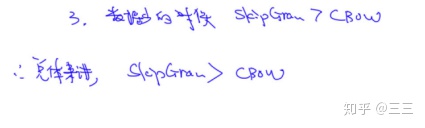 3. 数据少的时候 SkipGram > CBOW
∴ 总体来讲, SkipGram > CBOW
知乎 @三三